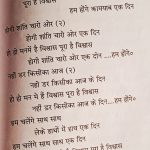 पूरा है विश्वास
हम होंगे कामयाब एक दिन
होगी शांति चारो ओर (२)
होगी शांति चारो ओर एक दिन
हो हो मनमे है विश्वास पूरा है विश्वास
होगी शांति चारो ओर एक दिन ...हम होंगे०
नहीं डर किसीका आज (२)
नहीं डर किसीका आज के दिन
हो हो मन मे है विश्वास पूरा है विश्वास
नहीं डर किसीका आज के दिन....हम होंगे०
हम चलेंगे साथ साथ
लेके हाथों में हाथ एक दिन
हम चलेंगे साथ साथ एक दिन